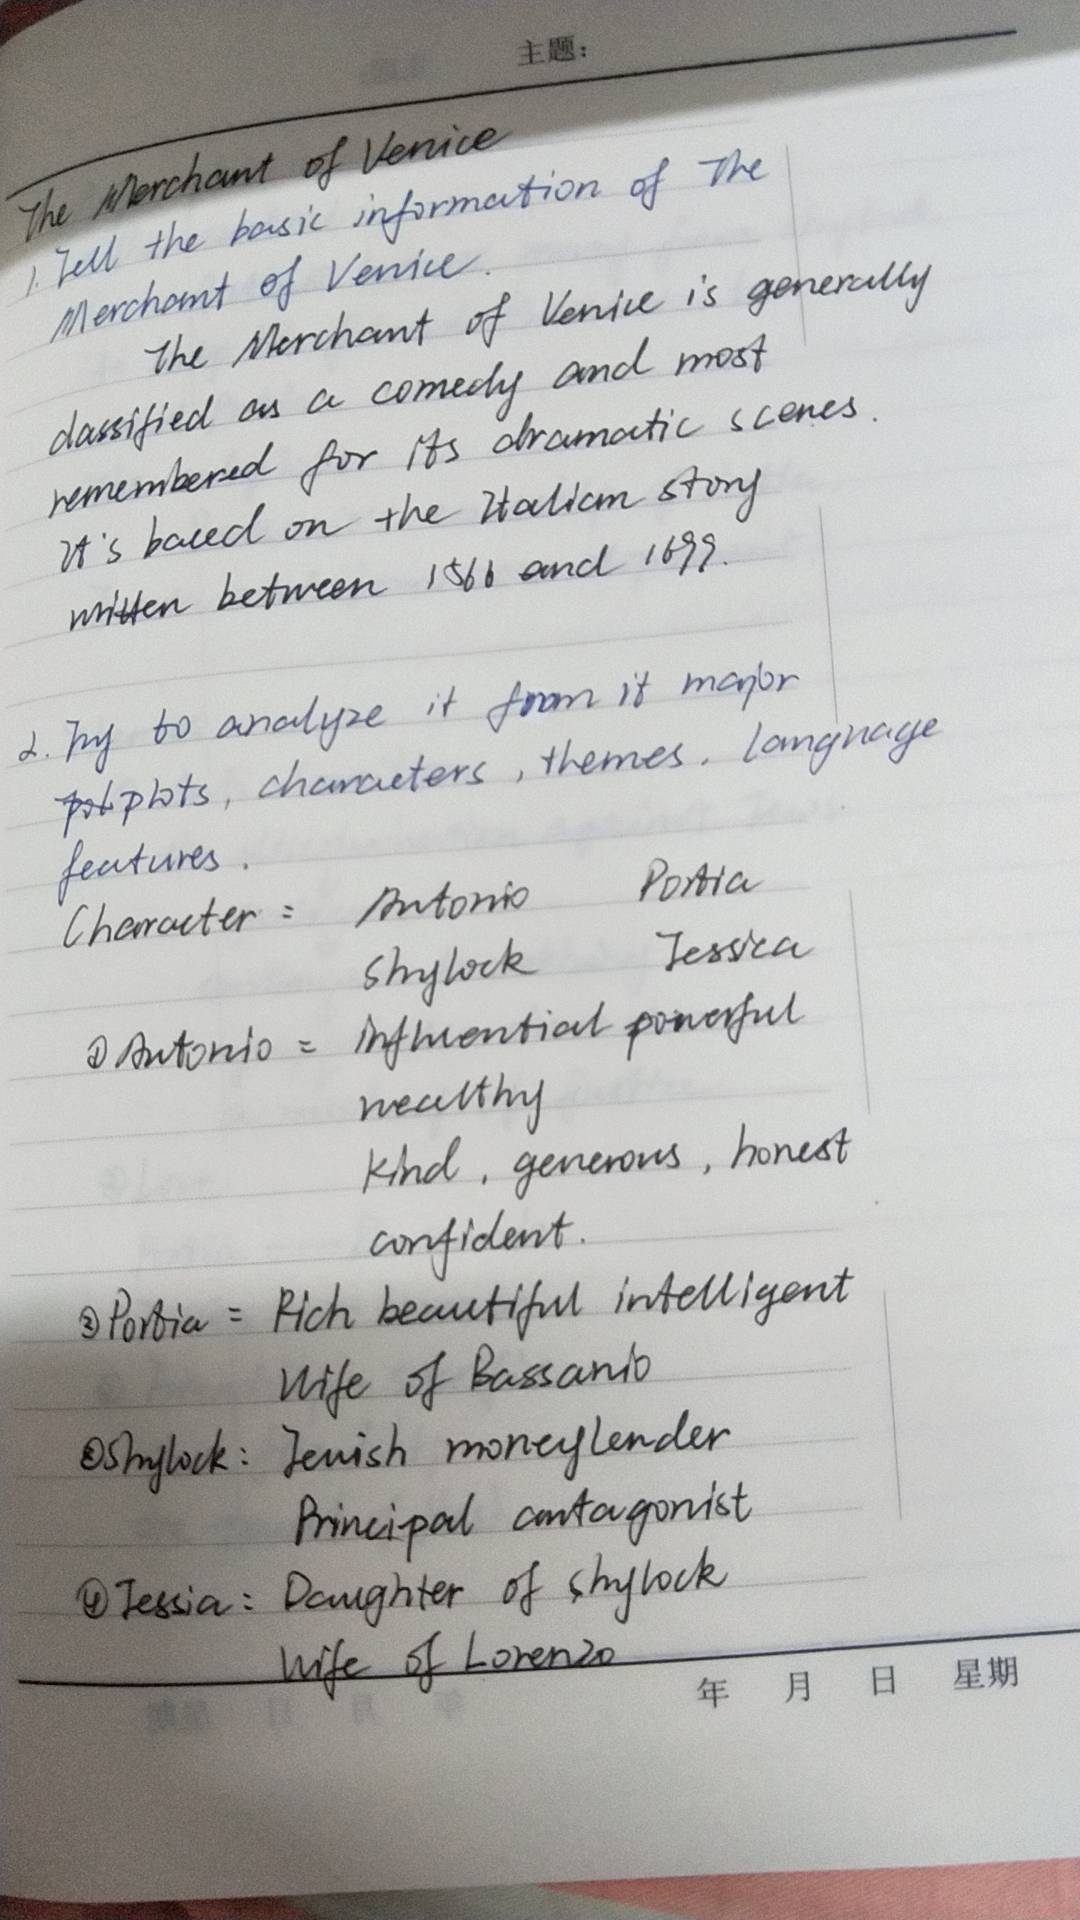 主题:
The Merchant of Venice
1. Tell the basic information of The
Merchant of Venice.
The Merchant of Venice is generally
classified as a comedy and most
remembered for its dramatic scenes.
It's baced on the Italian story
written between 1566 and 1699.
2. Try to analyze it from it major
plots, characters, themes, language
features.
Character: Antonio Portia
Shylock Jessica
① Antonio: influential powerful
wealthy
kind, generous, honest
confident.
② Portia: Rich beautiful intelligent
Wife of Bassanio
③ Shylock: Jewish moneylender
Principal antagonist
④ Jessia: Daughter of Shylock
Wife of Lorenzo
年 月 日 星期